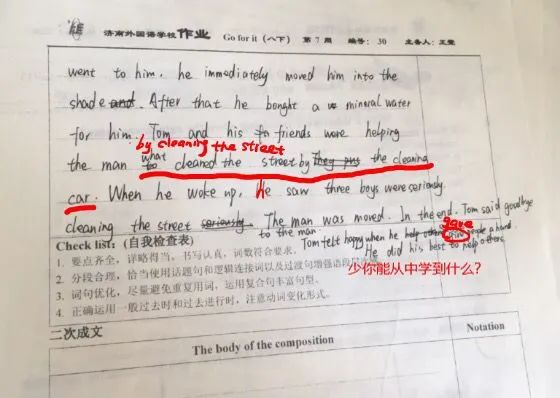 济南外国语学校 作业 Go for it (八下) 第 7 周 编号: 30 主备人: 王莹
went to him. he immediately moved him into the
shade and. After that he bought a mintral water
for him. Tom and his friends were helping
by cleaning the street
the man what cleaned the street by They pus the cleaning
car. When he woke up, he saw three boys were seriously
cleaning the street seriously. The man was moved. In the end, Tom said goodbye
to the man. gave
Tom felt happy when he help others a hand.
He did his best to help others.
Check list: (自我检查表)
1. 要点齐全,详略得当,书写认真,词数符合要求。
少你能从中学到什么?
2. 分段合理,恰当使用话题句和逻辑连接词以及过渡句增强语段
3. 词句优化,尽量避免重复用词,运用复合句丰富句型。
4. 正确运用一般过去时和过去进行时,注意动词变化形式。
二次成文
The body of the composition Notation